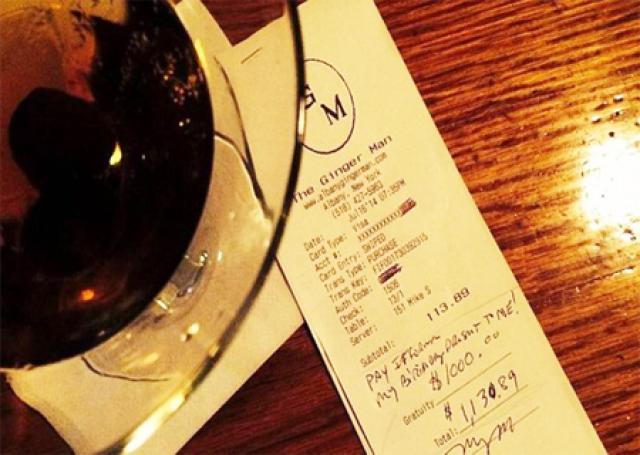 G M
The Ginger Man
www.albanygingerman.com
Albany, New York
(518) 427-5963
Date: Jul16'14 07:35PM
Card Type: Visa
Acct #: XXXXXXXXXXXX
Card Entry: SWIPED
Trans Type: PURCHASE
Trans Key: FIF001730392915
Auth Code:
Check: 508
Table: 13/1
Server: 151 Mike S
Subtotal: 113.89
PAY IT Forward
My Birthday PresNT To ME!
Gratuity $1000.00
Total: $1,130.89